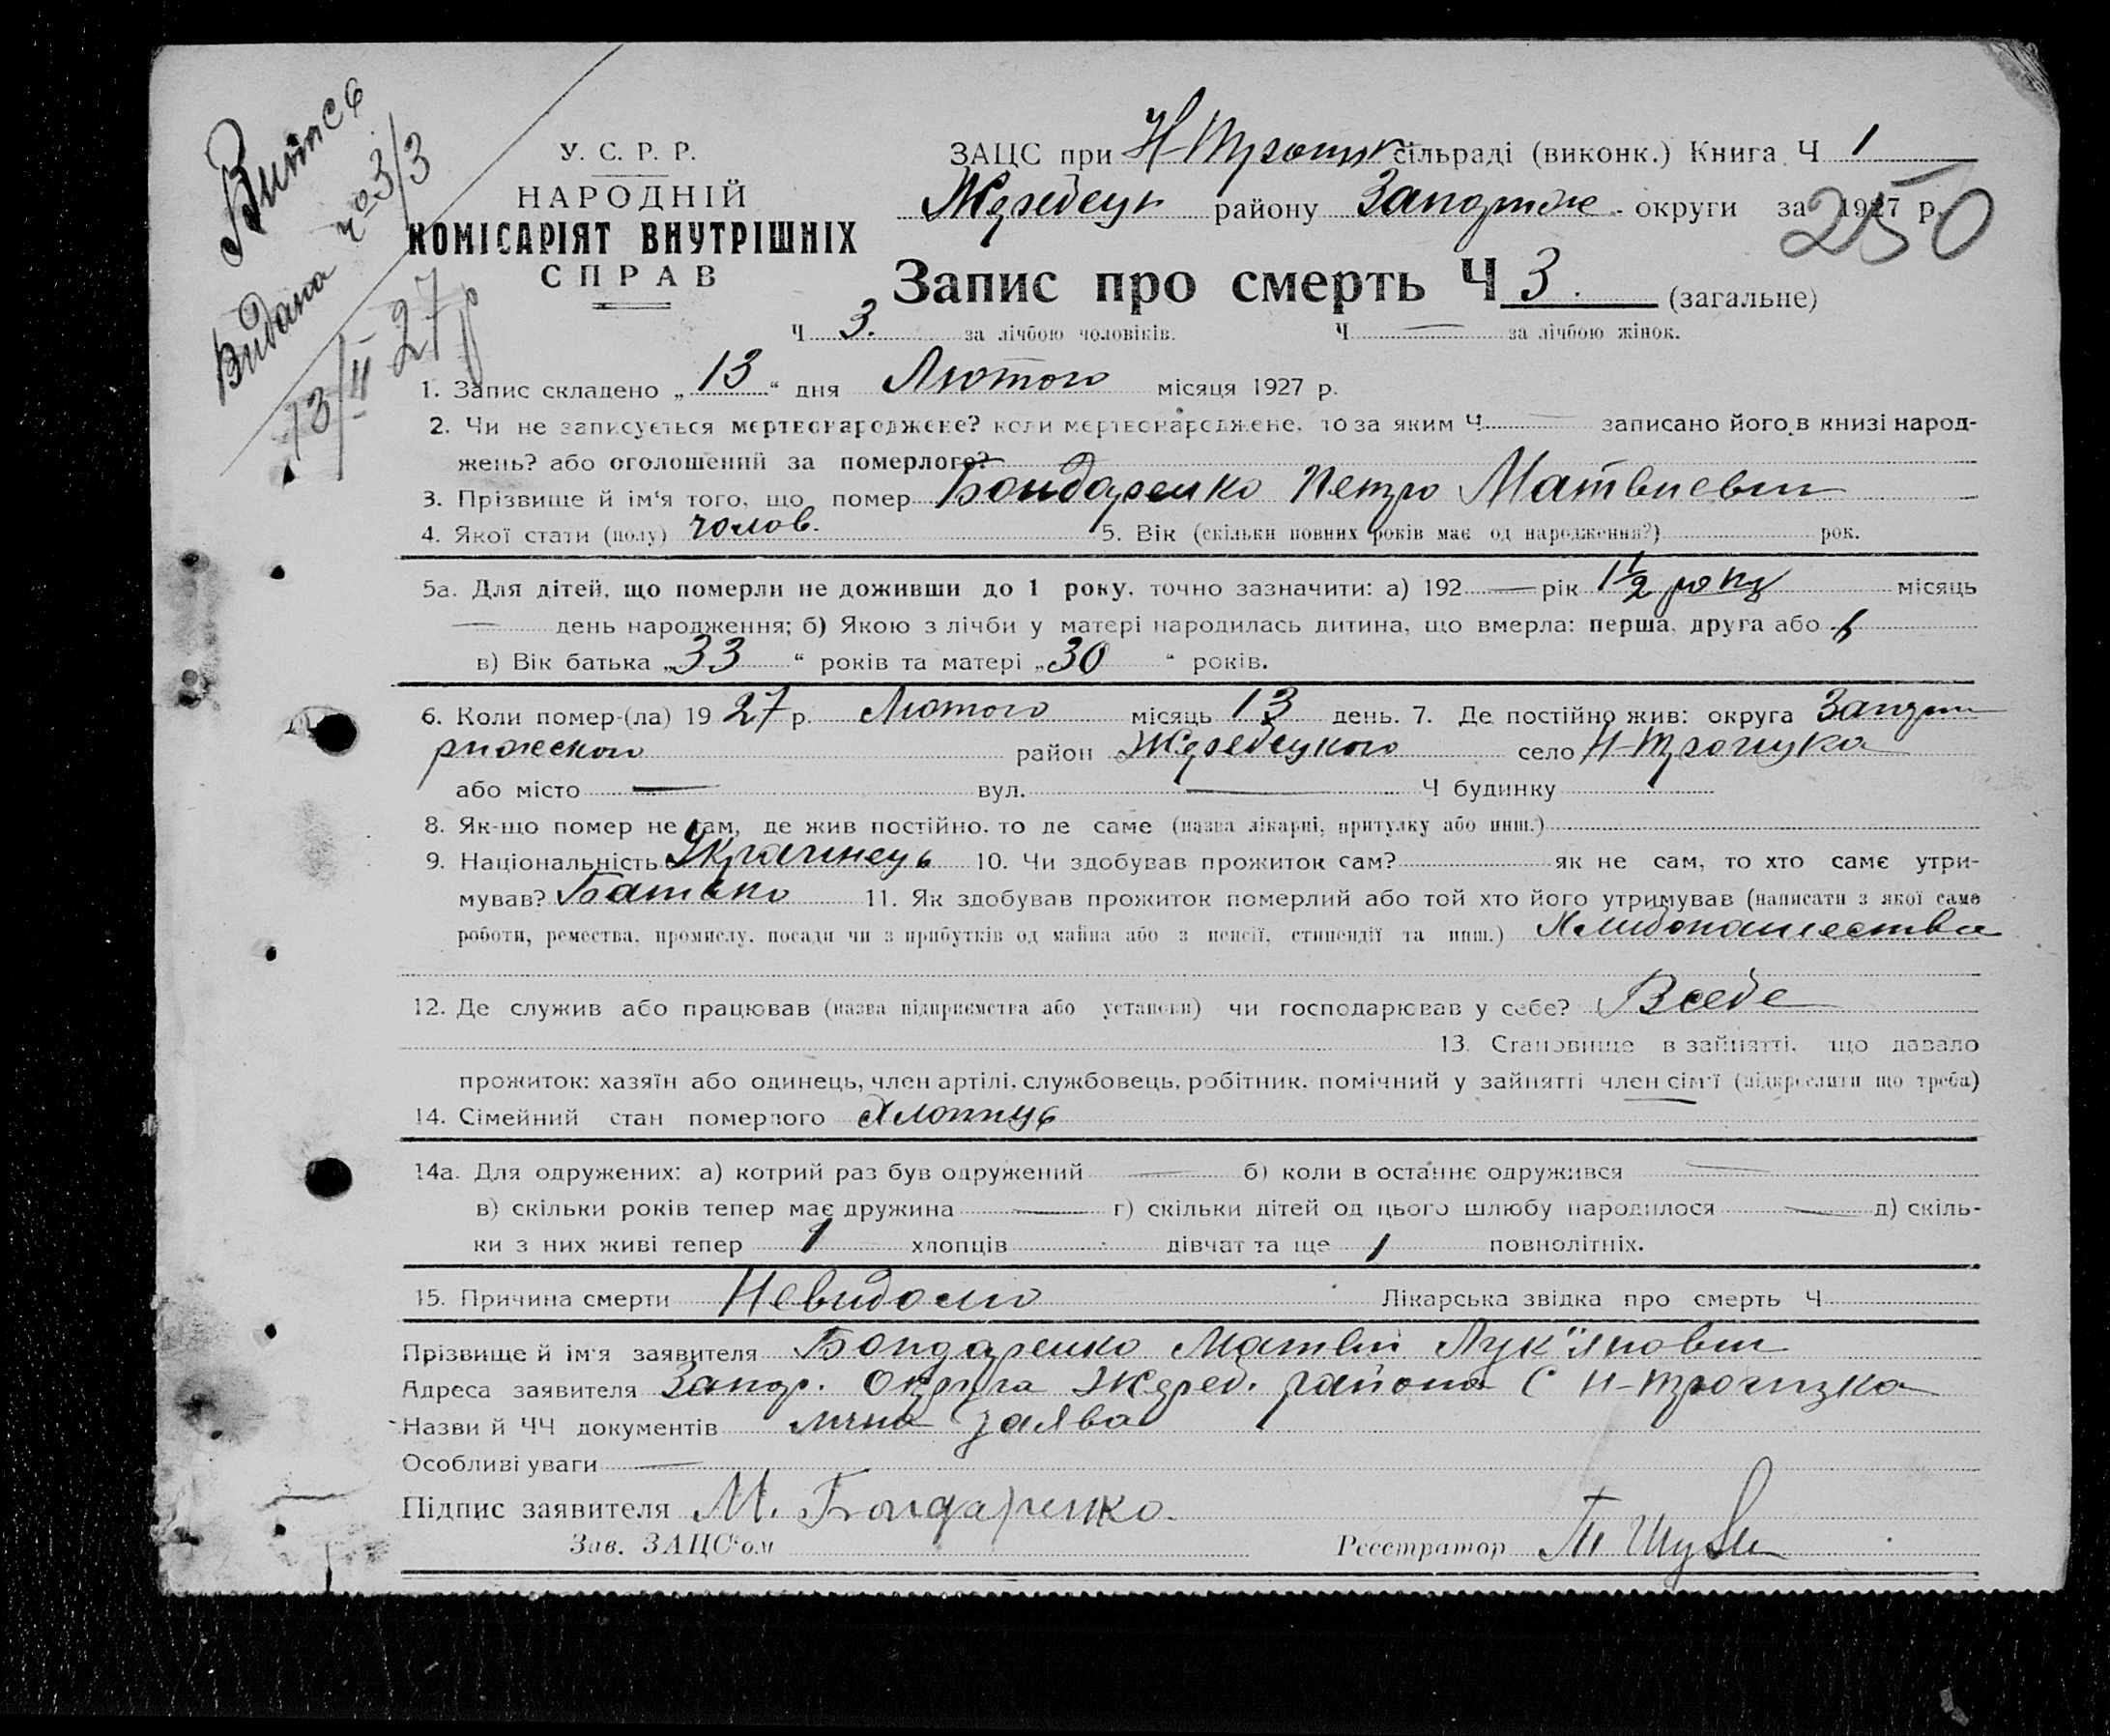 Випись
Видана № 3/3
13/II 27 р
У. С. Р. Р.
НАРОДНІЙ
КОМІСАРІЯТ ВНУТРІШНІХ
СПРАВ
ЗАЦС при Н-Троицк сільраді (виконк.) Книга Ч 1
Жеребецк району Запоріж - округи за 1927 р.
250
Запис про смерть Ч 3. (загальне)
Ч 3. за лічбою чоловіків. Ч — за лічбою жінок.
1. Запис складено „ 13 “ дня Лютого місяця 1927 р.
2. Чи не записується мертвонароджене? коли мертвонароджене, то за яким Ч — записано його в книзі народ-
жень? або оголошений за померлого?
3. Прізвище й ім‘я того, що помер Бондаренко Петро Матвиевич
4. Якої стати (полу) чолов. 5. Вік (скільки повних років має од народження?) рок.
5а. Для дітей, що померли не доживши до 1 року, точно зазначити: а) 192 — рік 1 1/2 року місяць
— день народження; б) Якою з лічби у матері народилась дитина, що вмерла: перша, друга або
в) Вік батька „ 33 “ років та матері „ 30 “ років.
6. Коли помер-(ла) 19 27 р. Лютого місяць 13 день. 7. Де постійно жив: округа Запо
рижского район Жеребецкого село Н-Троицка
або місто — вул. — Ч будинку
8. Як-що помер не там, де жив постійно, то де саме (назва лікарні, притулку або инш.)
9. Національність Украинець 10. Чи здобував прожиток сам? як не сам, то хто саме утри-
мував? Батько 11. Як здобував прожиток померлий або той хто його утримував (написати з якої саме
роботи, ремества, промислу, посади чи з прибутків од майна або з пенсії, стипендії та инш.) Хлибопашества
12. Де служив або працював (назва підприємства або установи) чи господарював у себе? Всебе
13. Становище в зайнятті, що давало
прожиток: хазяїн або одинець, член артілі, службовець, робітник, помічний у зайнятті член сім‘ї (підкреслити що треба)
14. Сімейний стан померлого Хлоппць
14а. Для одружених: а) котрий раз був одружений — б) коли в останнє одружився —
в) скільки років тепер має дружина — г) скільки дітей од цього шлюбу народилося — д) скіль-
ки з них живі тепер 1 хлопців дівчат та ще 1 повнолітніх.
15. Причина смерти Невидомо Лікарська звідка про смерть Ч
Прізвище й ім‘я заявителя Бондаренко Матвій Лук"янович
Адреса заявителя Запор. Округа Жереб. района С Н-Троицка
Назви й ЧЧ документів лична заява
Особливі уваги —
Підпис заявителя М. Бондаренко.
Зав. ЗАЦС‘ом Реєстратор